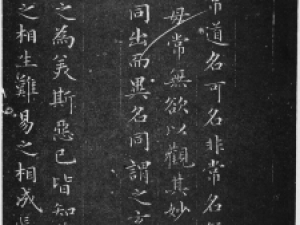 常道名可名非常名
母常無欲以觀其妙
同出而異名同謂之玄
之為美斯惡已皆知
之相生難易之相成